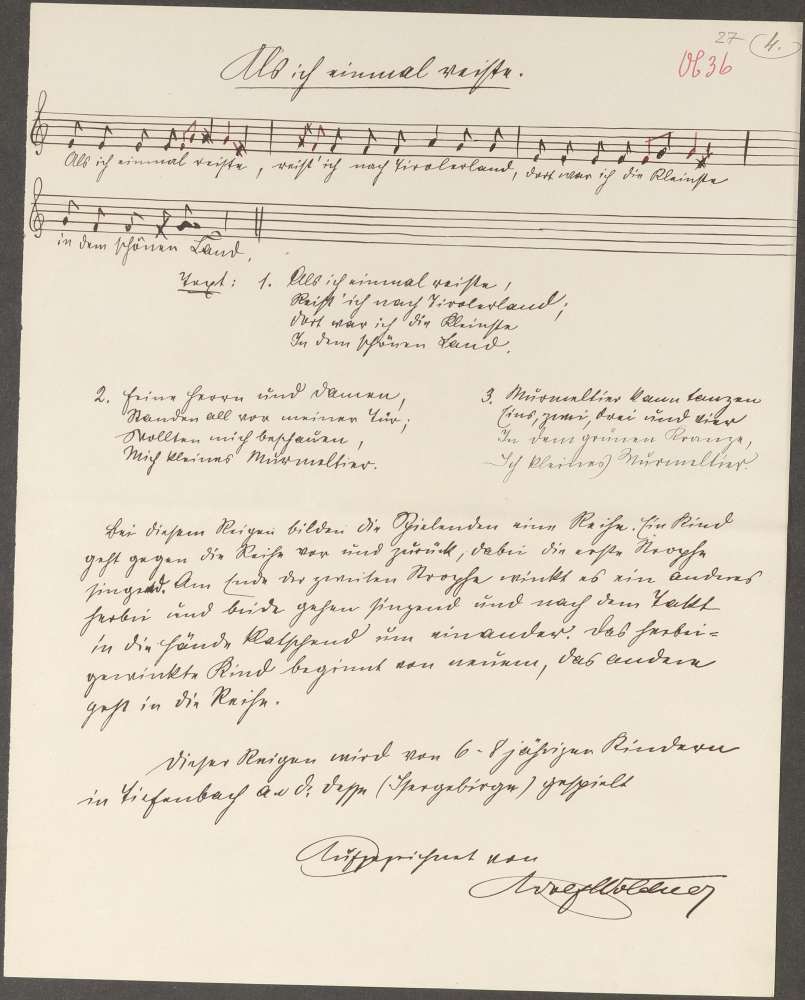 27 4.
Vb 36
Als ich einmal reiste.
Als ich einmal reiste, reist' ich nach Tirolerland, dort war ich die Kleinste
in dem schönen Land.
Text: 1. Als ich einmal reiste,
Reist' ich nach Tirolerland;
dort war ich die Kleinste
In dem schönen Land.
2. Feine Herrn und Damen,
Standen all vor meiner Tür;
Wollten mich beschauen,
Mich kleines Murmeltier.
3. Murmeltier kann tanzen
Eins, zwei, drei und vier
In dem grünen Kranze,
Ich kleines Murmeltier.
Bei diesem Reigen bilden die Spielenden eine Reihe. Ein Kind
geht gegen die Reihe vor und zurück, dabei die erste Strophe
singend. Am Ende der zweiten Strophe winkt es ein anderes
herbei und beide gehen singend und nach dem Takt
in die Hände klatschend um einander. Das herbei=
gewinkte Kind beginnt von neuem, das andere
geht in die Reihe.
Dieser Reigen wird von 6-8 jährigen Kindern
in Tiefenbach a. d. Desse (Isergebirge) gespielt
Aufgezeichnet von
Adolf